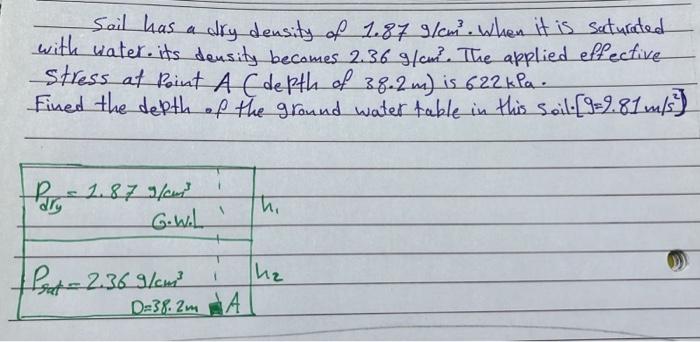 Soil has a dry density of 1.87 g/cm³. When it is saturated
with water. its density becomes 2.36 g/cm³. The applied effective
stress at Point A (depth of 38.2 m) is 622 kPa.
Fined the depth of the ground water table in this soil.[g=9.81 m/s²]
Pdry = 1.87 g/cm³
h1
G.W.L
Psat = 2.36 g/cm³
h2
D=38.2m A